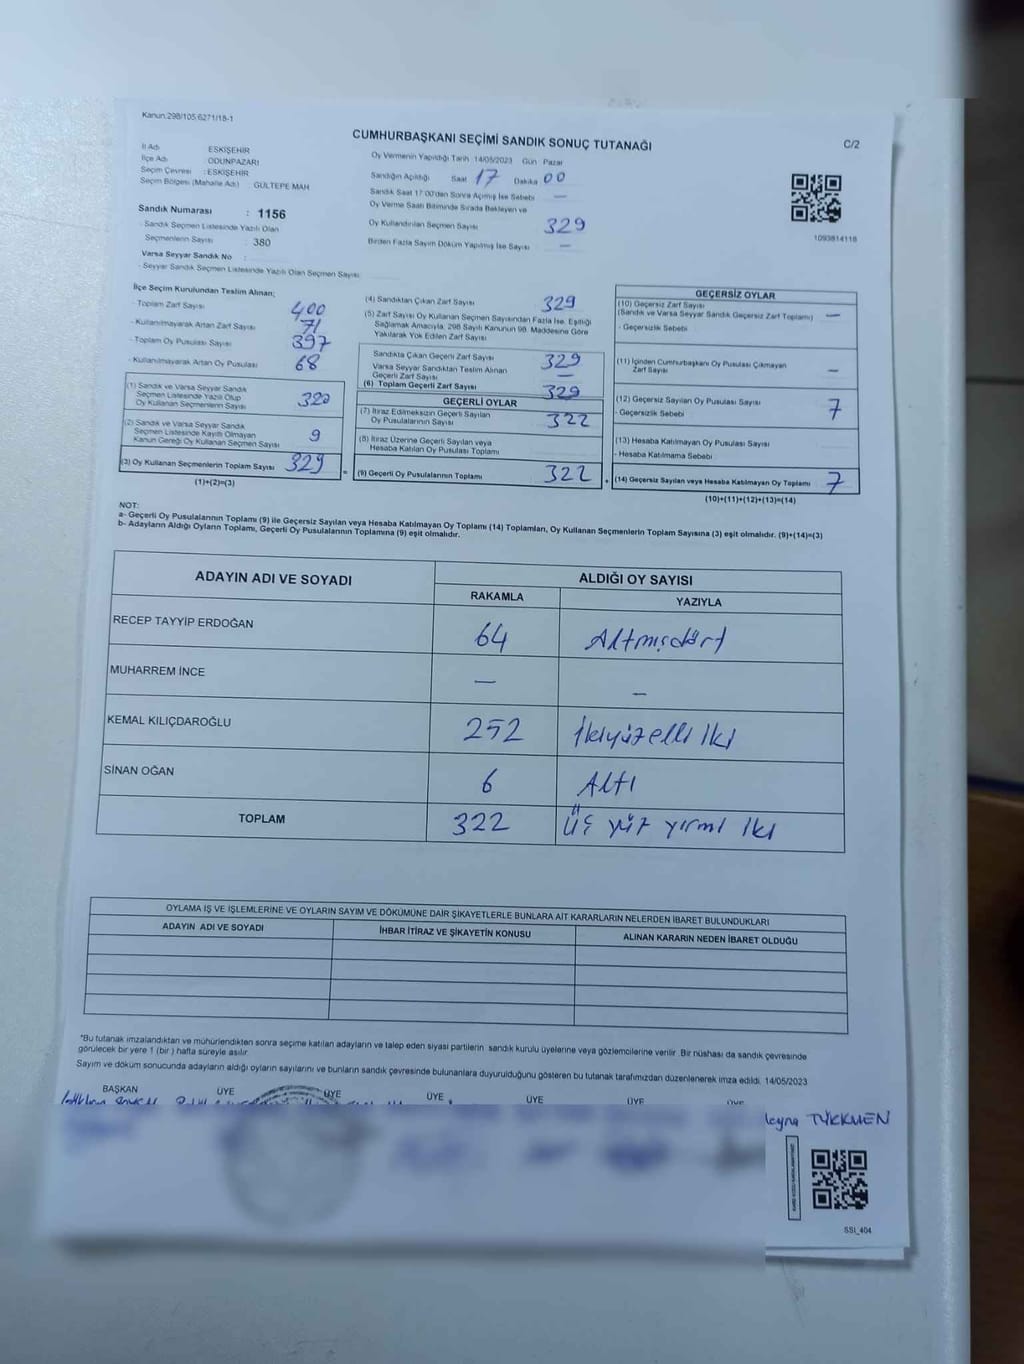 Kanun.298/105.6271/18-1
CUMHURBAŞKANI SEÇİMİ SANDIK SONUÇ TUTANAĞI
C/2
İl Adı ESKİŞEHİR
İlçe Adı ODUNPAZARI
Seçim Çevresi : ESKİŞEHİR
Seçim Bölgesi (Mahalle Adı) GÜLTEPE MAH
Oy Vermenin Yapıldığı Tarih 14/05/2023 Gün Pazar
Sandığın Açıldığı Saat 17 Dakika 00
Sandık Saat 17:00'den Sonra Açılmış İse Sebebi —
Oy Verme Saati Bitiminde Sırada Bekleyen ve
Oy Kullandırılan Seçmen Sayısı 329
Birden Fazla Sayım Döküm Yapılmış İse Sayısı —
1093814118
Sandık Numarası : 1156
- Sandık Seçmen Listesinde Yazılı Olan
Seçmenlerin Sayısı : 380
Varsa Seyyar Sandık No :
- Seyyar Sandık Seçmen Listesinde Yazılı Olan Seçmen Sayısı:
İlçe Seçim Kurulundan Teslim Alınan;
- Toplam Zarf Sayısı 400
- Kullanılmayarak Artan Zarf Sayısı 71
- Toplam Oy Pusulası Sayısı 397
- Kullanılmayarak Artan Oy Pusulası 68
(1) Sandık ve Varsa Seyyar Sandık
Seçmen Listesinde Yazılı Olup
Oy Kullanan Seçmenlerin Sayısı 320
(2) Sandık ve Varsa Seyyar Sandık
Seçmen Listesinde Kayıtlı Olmayan
Kanun Gereği Oy Kullanan Seçmen Sayısı 9
(3) Oy Kullanan Seçmenlerin Toplam Sayısı 329
(1)+(2)=(3)
(4) Sandıktan Çıkan Zarf Sayısı 329
(5) Zarf Sayısı Oy Kullanan Seçmen Sayısından Fazla İse, Eşitliği
Sağlamak Amacıyla, 298 Sayılı Kanunun 98. Maddesine Göre
Yakılarak Yok Edilen Zarf Sayısı
Sandıkta Çıkan Geçerli Zarf Sayısı 329
Varsa Seyyar Sandıktan Teslim Alınan
Geçerli Zarf Sayısı —
(6) Toplam Geçerli Zarf Sayısı 329
GEÇERLİ OYLAR
(7) İtiraz Edilmeksizin Geçerli Sayılan
Oy Pusulalarının Sayısı 322
(8) İtiraz Üzerine Geçerli Sayılan veya
Hesaba Katılan Oy Pusulası Toplamı
= (9) Geçerli Oy Pusulalarının Toplamı 322
GEÇERSİZ OYLAR
(10) Geçersiz Zarf Sayısı
(Sandık ve Varsa Seyyar Sandık Geçersiz Zarf Toplamı) —
- Geçersizlik Sebebi
(11) İçinden Cumhurbaşkanı Oy Pusulası Çıkmayan
Zarf Sayısı —
(12) Geçersiz Sayılan Oy Pusulası Sayısı 7
- Geçersizlik Sebebi
(13) Hesaba Katılmayan Oy Pusulası Sayısı
- Hesaba Katılmama Sebebi
+ (14) Geçersiz Sayılan veya Hesaba Katılmayan Oy Toplamı 7
(10)+(11)+(12)+(13)=(14)
NOT:
a- Geçerli Oy Pusulalarının Toplamı (9) ile Geçersiz Sayılan veya Hesaba Katılmayan Oy Toplamı (14) Toplamları, Oy Kullanan Seçmenlerin Toplam Sayısına (3) eşit olmalıdır. (9)+(14)=(3)
b- Adayların Aldığı Oyların Toplamı, Geçerli Oy Pusulalarının Toplamına (9) eşit olmalıdır.
ADAYIN ADI VE SOYADI ALDIĞI OY SAYISI
RAKAMLA YAZIYLA
RECEP TAYYİP ERDOĞAN 64 Altmışdört
MUHARREM İNCE — —
KEMAL KILIÇDAROĞLU 252 İkiyüzelli iki
SİNAN OĞAN 6 Altı
TOPLAM 322 Üç yüz yirmi iki
OYLAMA İŞ VE İŞLEMLERİNE VE OYLARIN SAYIM VE DÖKÜMÜNE DAİR ŞİKAYETLERLE BUNLARA AİT KARARLARIN NELERDEN İBARET BULUNDUKLARI
ADAYIN ADI VE SOYADI İHBAR İTİRAZ VE ŞİKAYETİN KONUSU ALINAN KARARIN NEDEN İBARET OLDUĞU
*Bu tutanak imzalandıktan ve mühürlendikten sonra seçime katılan adayların ve talep eden siyasi partilerin sandık kurulu üyelerine veya gözlemcilerine verilir. Bir nüshası da sandık çevresinde
görülecek bir yere 1 (bir) hafta süreyle asılır.
Sayım ve döküm sonucunda adayların aldığı oyların sayılarını ve bunların sandık çevresinde bulunanlara duyurulduğunu gösteren bu tutanak tarafımızdan düzenlenerek imza edildi. 14/05/2023
BAŞKAN ÜYE ÜYE ÜYE ÜYE ÜYE ÜYE
leyna TÜRKMEN
SSİ_404